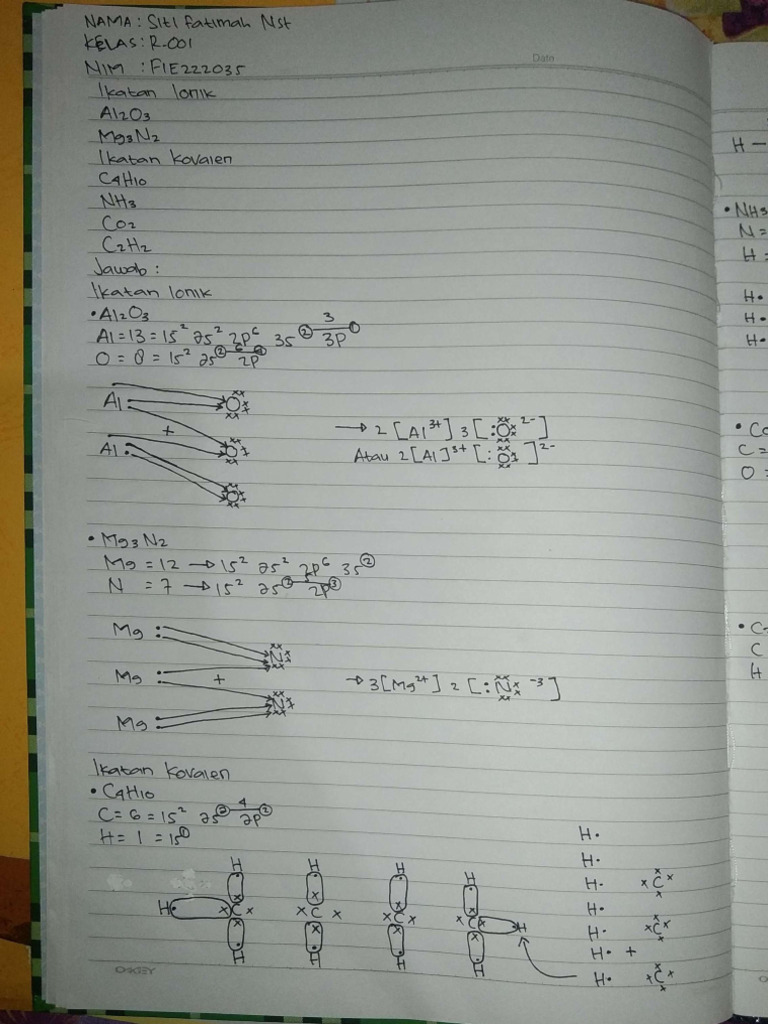 NAMA : Siti Fatimah Nst
KELAS : R-001
NIM : F1E222035
Date
Ikatan Ionik
Al2O3
Mg3N2
Ikatan Kovalen
C4H10
NH3
CO2
C2H2
Jawab :
Ikatan Ionik
• Al2O3
Al = 13 = 1s² 2s² 2p⁶ 3s② 3 3p①
O = 8 = 1s² 2s② 6 2p④
Al
Al +
O
O
O
→ 2 [Al³⁺] 3 [:O 2-]
Atau 2 [Al]³⁺ [:O ]²⁻
• Mg3N2
Mg = 12 → 1s² 2s² 2p⁶ 3s②
N = 7 → 1s² 2s② 5 2p③
Mg :
Mg : +
Mg :
N
N
→ 3 [Mg²⁺] 2 [:N -3]
Ikatan Kovalen
• C4H10
C = 6 = 1s² 2s② 4 2p②
H = 1 = 1s①
H H H H
H C C C C H
H H H H
H•
H•
H• C
H•
H• C
H• +
H• C
OKEY
H —
• NH3
N =
H =
H•
H•
H•
C =
O =
C
H